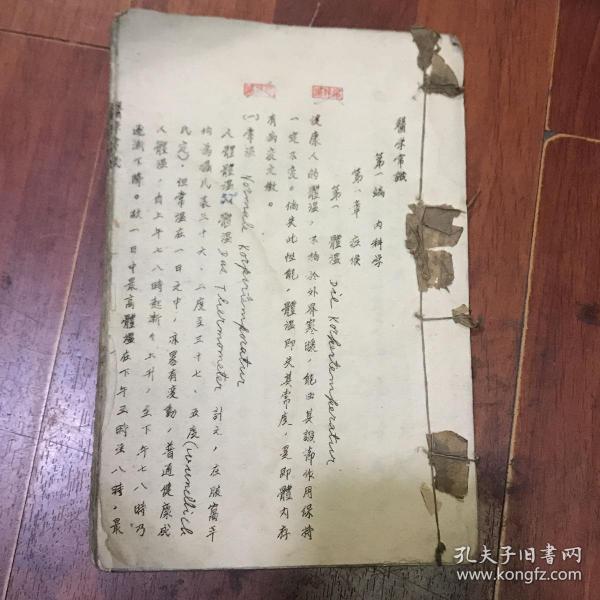 醫学常識
第一編 内科学
第一章 症候
第一 體溫 Die Körpertemperatur.
健康人的體溫，不拘於外界寒暖，能由其調節作用保持
一定不变。倘失此性能，體溫即失其常度，是即體内存
有病变之徵。
(一) 常溫 Normale Körpertemperatur
人體體溫以體溫 Das Thermometer 計之，在腋窩平
均為攝氏表三十六、二度至三十七、五度(Wunderlich
氏定)，但常溫在一日之中，亦畧有变動，普通健康成
人體溫，自上午七八時起漸々上升，至下午七八時乃
逐漸下降。故一日中最高體溫在下午五時至八時，最
孔夫子旧书网
www.kongfz.com